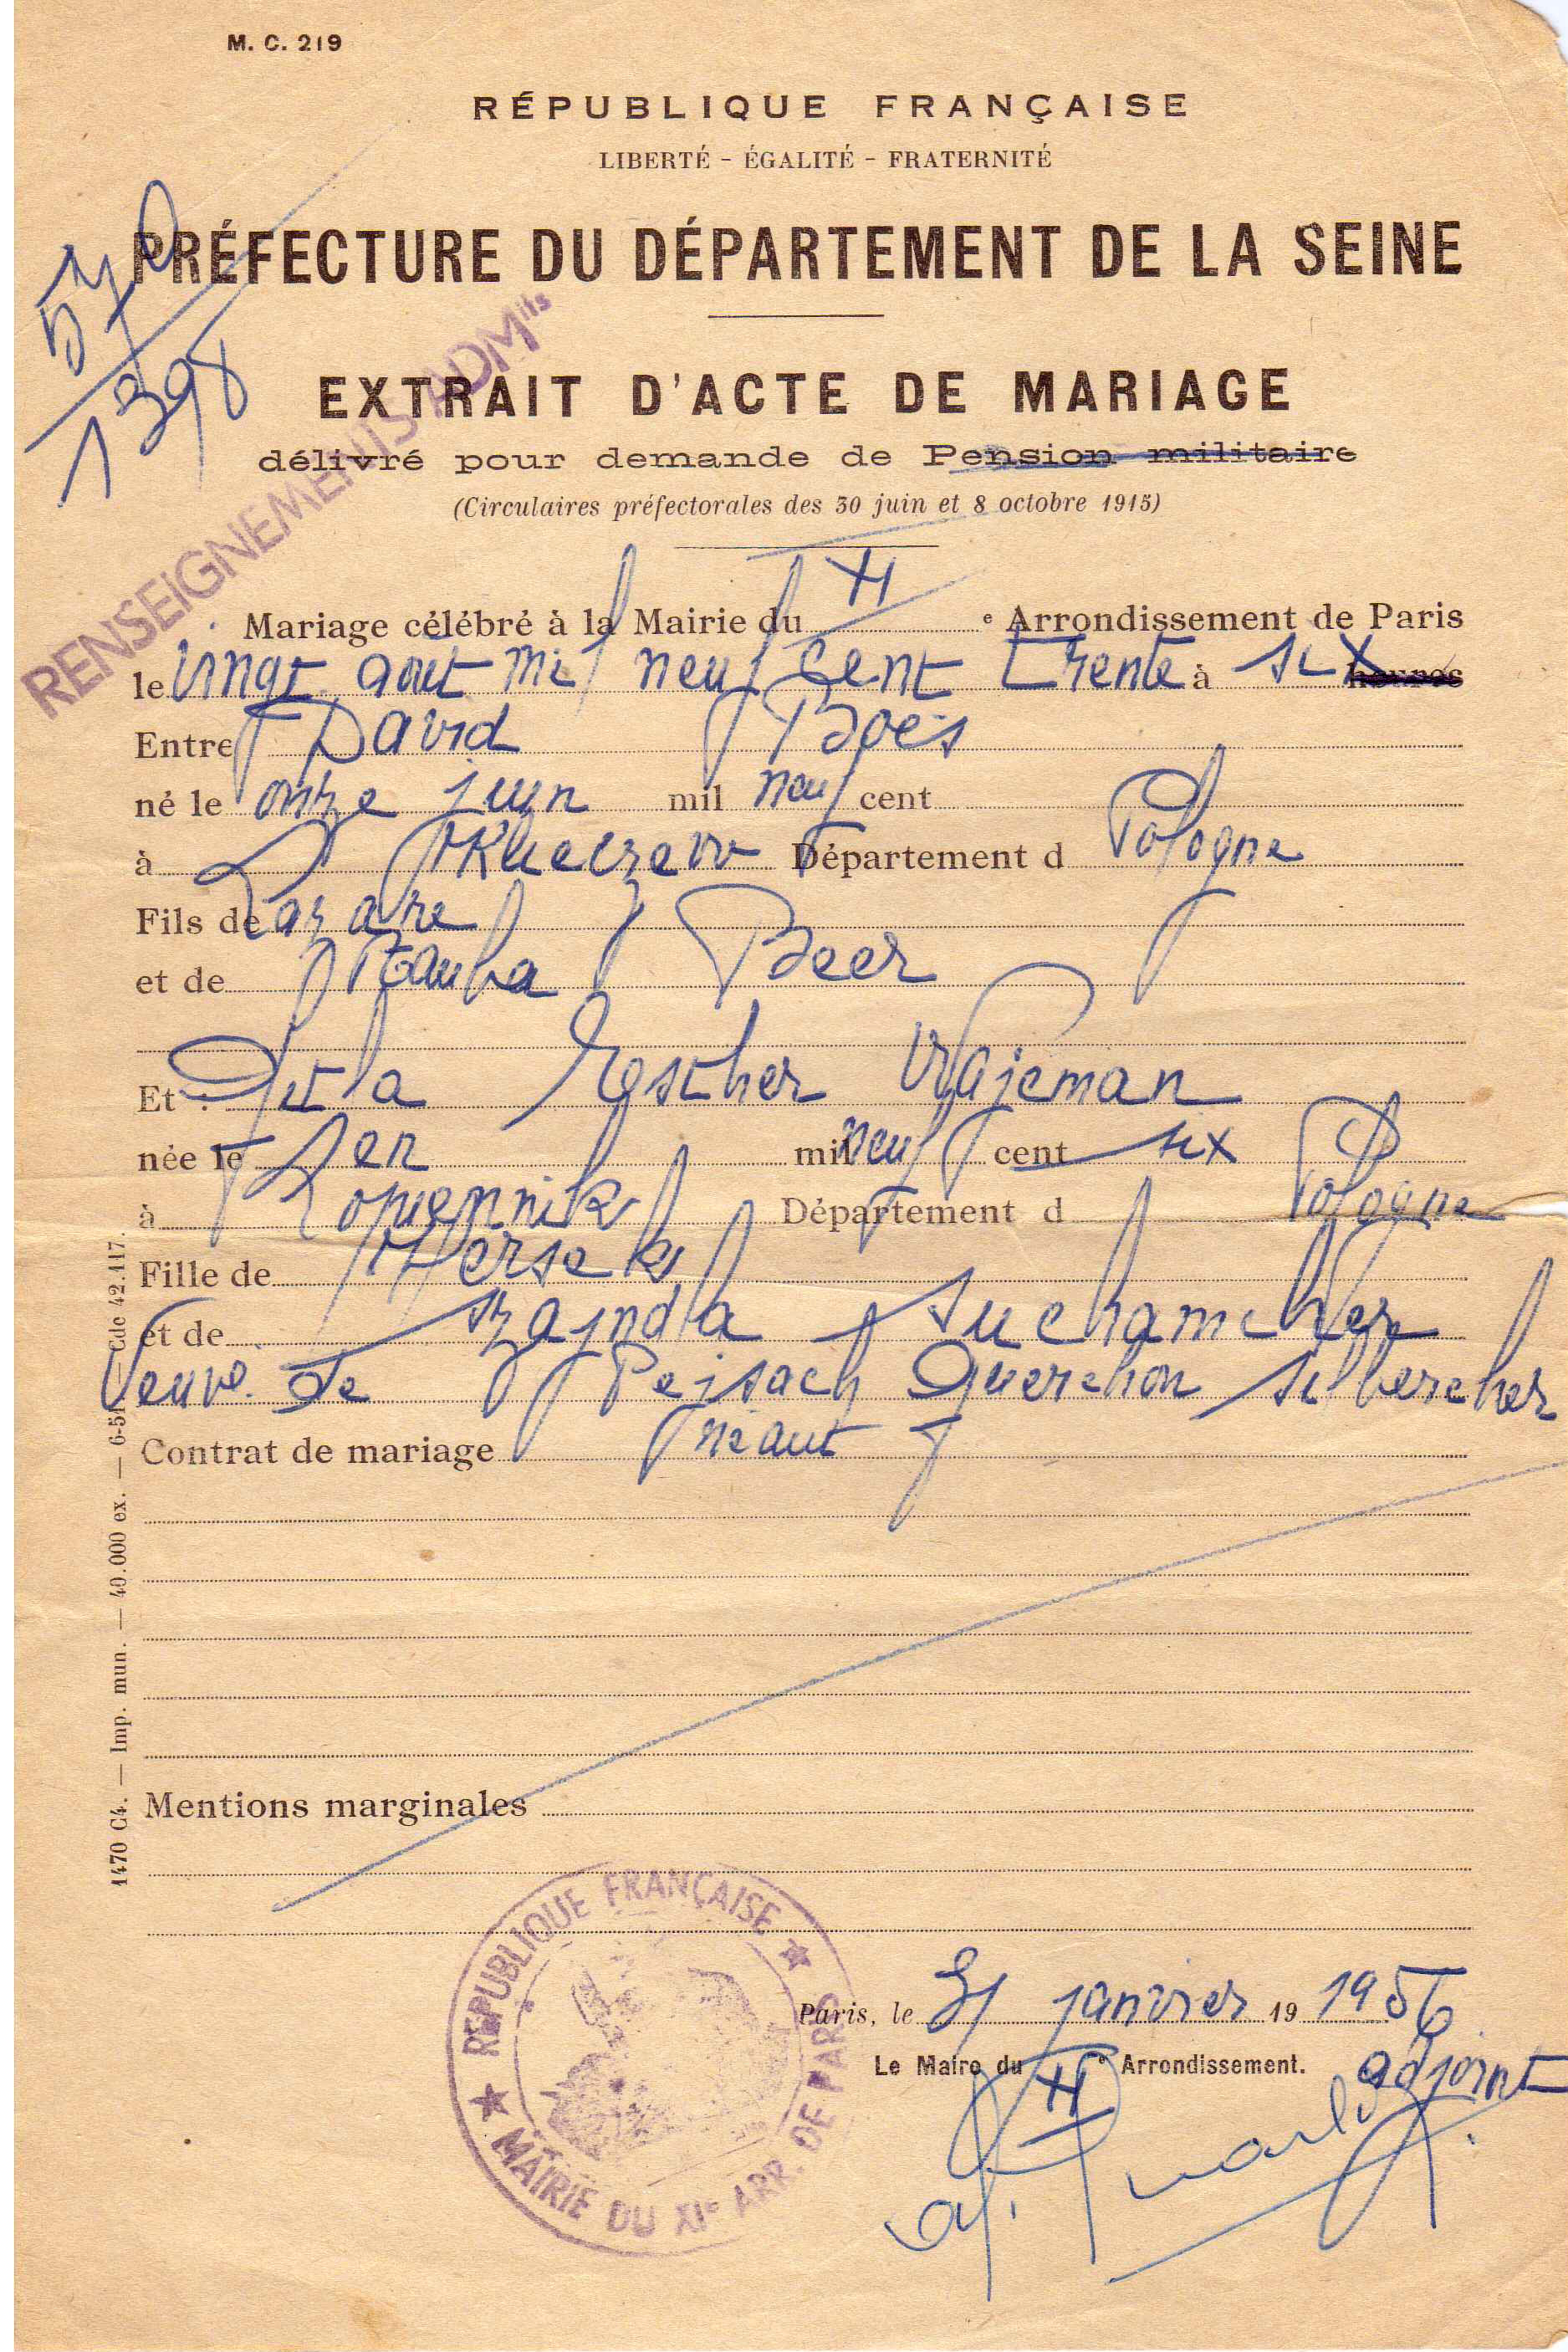 M. C. 219
RÉPUBLIQUE FRANÇAISE
LIBERTÉ - ÉGALITÉ - FRATERNITÉ
PRÉFECTURE DU DÉPARTEMENT DE LA SEINE
570
1398
EXTRAIT D'ACTE DE MARIAGE
RENSEIGNEMENTS ADMifs
délivré pour demande de Pension militaire
(Circulaires préfectorales des 30 juin et 8 octobre 1915)
Mariage célébré à la Mairie du XI e Arrondissement de Paris
le vingt aout mil neuf cent trente à six heures
Entre David Boès
né le onze juin mil neuf cent
à Département d Pologne
Fils de Lazare
et de Bauba Beer
Et Gitla Escher Wajeman
née le 1er mil neuf cent six
à Kopiennik Département d Pologne
Fille de Hersek
et de Szajndla
Veuve de Pejsach Guerchon Silbercher
Contrat de mariage néant
Mentions marginales
1470 C4. — Imp. mun. — 40.000 ex. — 6-51 — Cde 42.117.
RÉPUBLIQUE FRANÇAISE
MAIRIE DU XIe ARR. DE PARIS
Paris, le 31 janvier 19 1956
Le Maire du XI e Arrondissement. adjoint